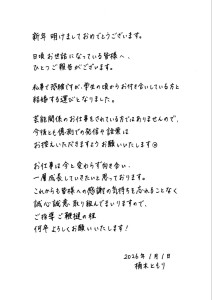 新年 明けましておめでとうございます。
日頃お世話になっている皆様へ、
ひとつご報告がございます。
私事で恐縮ですが、学生の頃からお付き合いしている方と
結婚する運びとなりました。
芸能関係のお仕事をされている方ではありませんので、
今後とも憶測での発信や詮索は
お控えいただきますようお願いいたします
お仕事は今と変わらず向き合い、
一層成長していきたいと思っております。
これからも皆様への感謝の気持ちを忘れることなく
誠心誠意 取り組んでまいりますので、
ご指導ご鞭撻の程
何卒よろしくお願いいたします!
2026年1月1日
楠木ともり